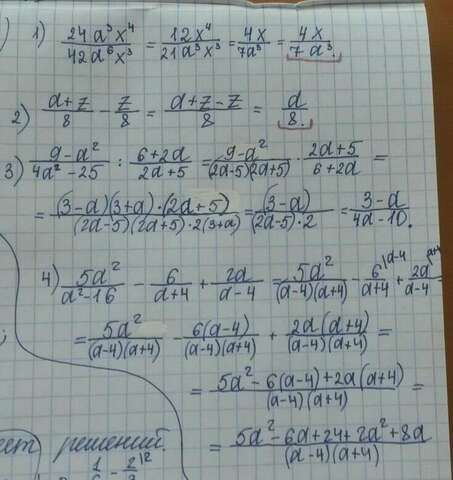 1) 24a³x⁴/42a⁶x³ = 12x⁴/21a³x³ = 4x/7a³ = 4x/7a³.
2) a+z/8 - z/8 = a+z-z/8 = a/8.
3) 9-a²/4a²-25 : 6+2a/2a+5 = 9-a²/(2a-5)(2a+5) · 2a+5/6+2a =
= (3-a)(3+a)·(2a+5)/(2a-5)(2a+5)·2(3+a) = (3-a)/(2a-5)·2 = 3-a/4a-10.
4) 5a²/a²-16 - 6/a+4 + 2a/a-4 = 5a²/(a-4)(a+4) - 6|a-4/a+4 + 2a|a+4/a-4 =
= 5a²/(a-4)(a+4) - 6(a-4)/(a-4)(a+4) + 2a(a+4)/(a-4)(a+4) =
= 5a²-6(a-4)+2a(a+4)/(a-4)(a+4) =
решений.
= 5a²-6a+24+2a²+8a/(a-4)(a+4)